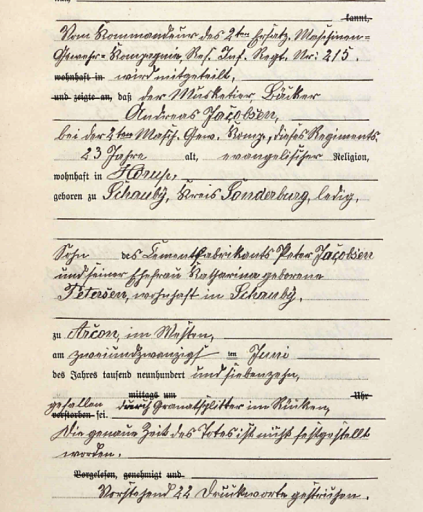 kannt,
Vom Kommandeur des 2ten Ersatz. Maschinen=
Gewehr-Kompagnie, Res. Inf. Regt. Nr: 215.
wohnhaft in wird mitgeteilt,
und zeigte an, daß der Musketier, Bäcker
Andreas Jacobsen,
bei der 2ten Masch. Gew. Komp., dieses Regiments
23 Jahre alt, evangelischer Religion,
wohnhaft in Hörup,
geboren zu Schauby, Kreis Sonderburg, ledig,
Sohn des Cementfabrikants Peter Jacobsen
und seiner Ehefrau Katharina geborene
Petersen, wohnhaft in Schauby.
zu Arcon, im Westen,
am zweiundzwanzigs ten Juni
des Jahres tausend neunhundert und siebenzehn,
mittags um Uhr
gefallen durch Granatsplitter im Rücken,
verstorben sei.
Die genaue Zeit des Todes ist nicht festgestellt
worden.
Vorgelesen, genehmigt und
Vorstehend 22 Druckworte gestrichen.